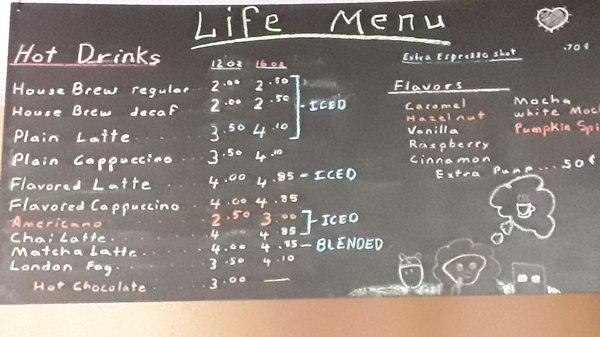 Life Menu
Hot Drinks 12oz 16oz
House Brew regular 2.00 2.50
House Brew decaf 2.00 2.50
ICED
Plain Latte 3.50 4.10
Plain Cappuccino 3.50 4.10
Flavored Latte 4.00 4.85 - ICED
Flavored Cappuccino 4.00 4.85
Americano 2.50 3.00
ICED
Chai Latte 4. 4.85
Matcha Latte 4.00 4.85 - BLENDED
London Fog 3.50 4.10
Hot Chocolate 3.00 —
Extra Espresso shot .70¢
Flavors
Caramel
Hazelnut
Vanilla
Raspberry
Cinnamon
Mocha
White Moc
Pumpkin Spi
Extra Pump....50¢